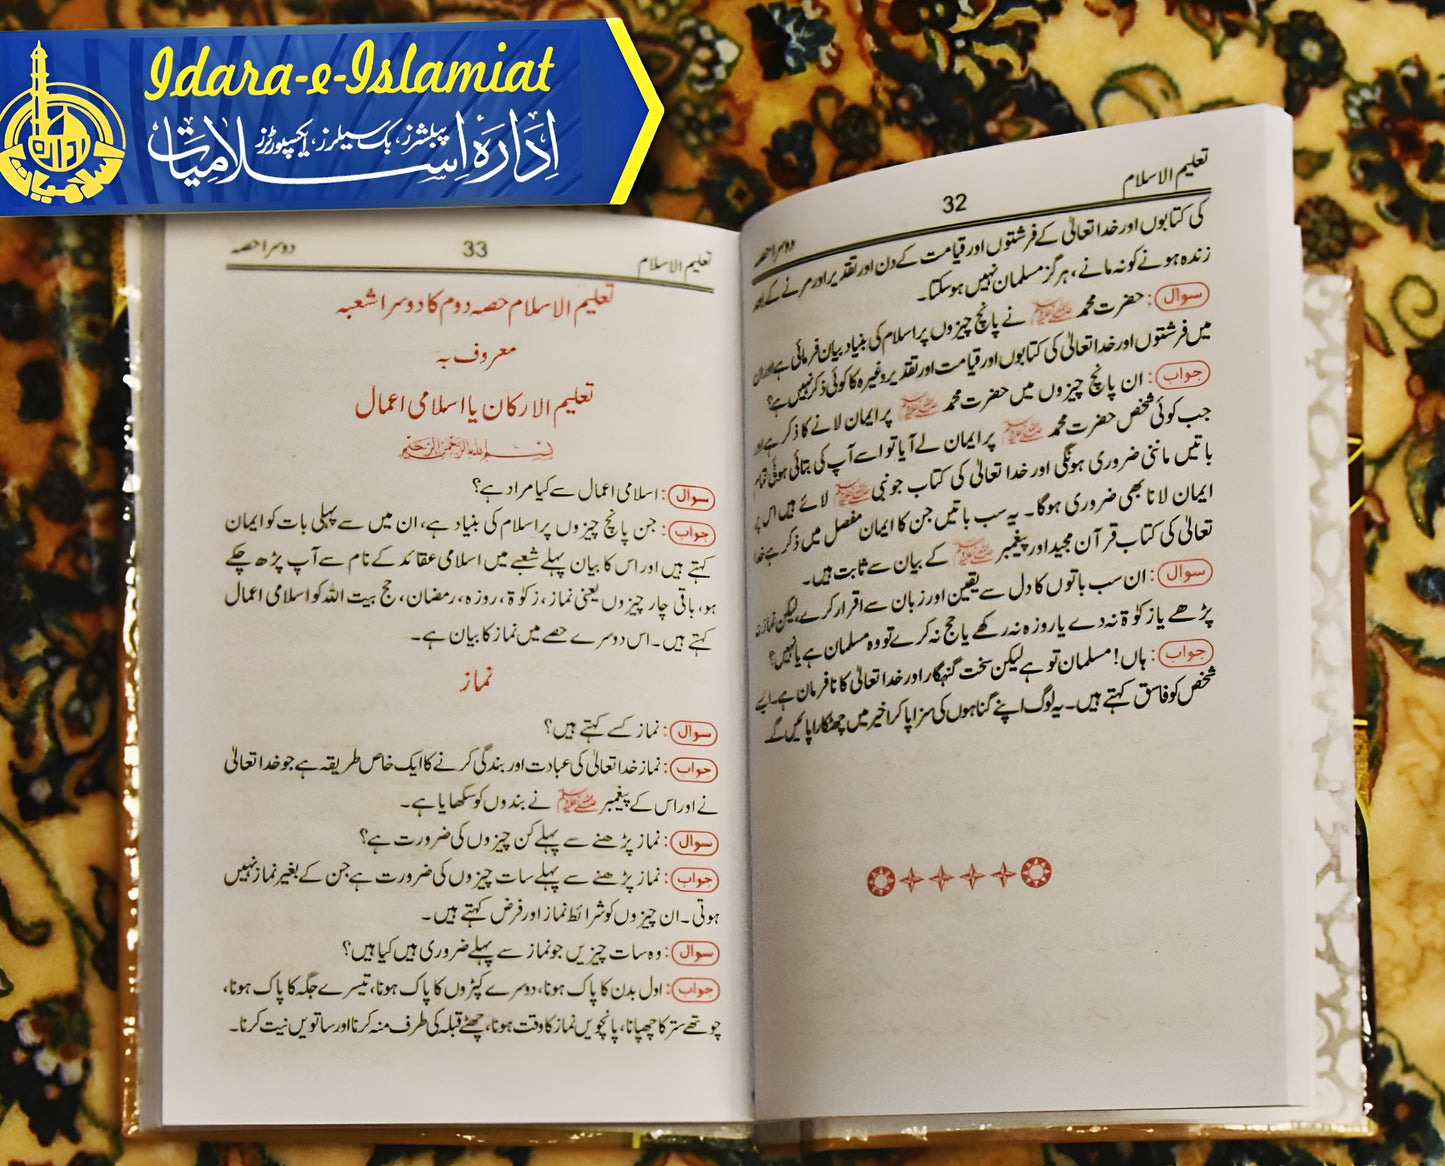 Idara-e-Islamiat
ادارۂ اسلامیات پبلشرز، بک سیلرز، ایکسپورٹرز
تعلیم الاسلام 32 دوسرا حصہ
کی کتابوں اور خدا تعالیٰ کے فرشتوں اور قیامت کے دن اور تقدیر اور مرنے کے بعد
زندہ ہونے کو نہ مانے، ہرگز مسلمان نہیں ہو سکتا۔
سوال: حضرت محمد ﷺ نے پانچ چیزوں پر اسلام کی بنیاد بیان فرمائی ہے اور ان
میں فرشتوں اور خدا تعالیٰ کی کتابوں اور قیامت اور تقدیر وغیرہ کا کوئی ذکر نہیں ہے؟
جواب: ان پانچ چیزوں میں حضرت محمد ﷺ پر ایمان لانے کا ذکر ہے اور
جب کوئی شخص حضرت محمد ﷺ پر ایمان لے آیا تو اسے آپ کی بتائی ہوئی تمام
باتیں ماننی ضروری ہونگی اور خدا تعالیٰ کی کتاب جو نبی ﷺ لائے ہیں اس پر
ایمان لانا بھی ضروری ہوگا۔ یہ سب باتیں جن کا ایمان مفصل میں ذکر ہے خدا
تعالیٰ کی کتاب قرآن مجید اور پیغمبر ﷺ کے بیان سے ثابت ہیں۔
سوال: ان سب باتوں کا دل سے یقین اور زبان سے اقرار کرے لیکن نماز نہ
پڑھے یا زکوٰۃ نہ دے یا روزہ نہ رکھے یا حج نہ کرے تو وہ مسلمان ہے یا نہیں؟
جواب: ہاں! مسلمان تو ہے لیکن سخت گنہگار اور خدا تعالیٰ کا نافرمان ہے۔ ایسے
شخص کو فاسق کہتے ہیں۔ یہ لوگ اپنے گناہوں کی سزا پا کر اخیر میں چھٹکارا پائیں گے
تعلیم الاسلام 33 دوسرا حصہ
تعلیم الاسلام حصہ دوم کا دوسرا شعبہ
معروف بہ
تعلیم الارکان یا اسلامی اعمال
بسم اللہ الرحمن الرحیم
سوال: اسلامی اعمال سے کیا مراد ہے؟
جواب: جن پانچ چیزوں پر اسلام کی بنیاد ہے، ان میں سے پہلی بات کو ایمان
کہتے ہیں اور اس کا بیان پہلے شعبے میں اسلامی عقائد کے نام سے آپ پڑھ چکے
ہو، باقی چار چیزوں یعنی نماز، زکوٰۃ، روزہ، رمضان، حج بیت اللہ کو اسلامی اعمال
کہتے ہیں۔ اس دوسرے حصے میں نماز کا بیان ہے۔
نماز
سوال: نماز کسے کہتے ہیں؟
جواب: نماز خدا تعالیٰ کی عبادت اور بندگی کرنے کا ایک خاص طریقہ ہے جو خدا تعالیٰ
نے اور اس کے پیغمبر ﷺ نے بندوں کو سکھایا ہے۔
سوال: نماز پڑھنے سے پہلے کن چیزوں کی ضرورت ہے؟
جواب: نماز پڑھنے سے پہلے سات چیزوں کی ضرورت ہے جن کے بغیر نماز نہیں
ہوتی۔ ان چیزوں کو شرائط نماز اور فرض کہتے ہیں۔
سوال: وہ سات چیزیں جو نماز سے پہلے ضروری ہیں کیا ہیں؟
جواب: اول بدن کا پاک ہونا، دوسرے کپڑوں کا پاک ہونا، تیسرے جگہ کا پاک ہونا،
چوتھے ستر کا چھپانا، پانچویں نماز کا وقت ہونا، چھٹے قبلہ کی طرف منہ کرنا اور ساتویں نیت کرنا۔